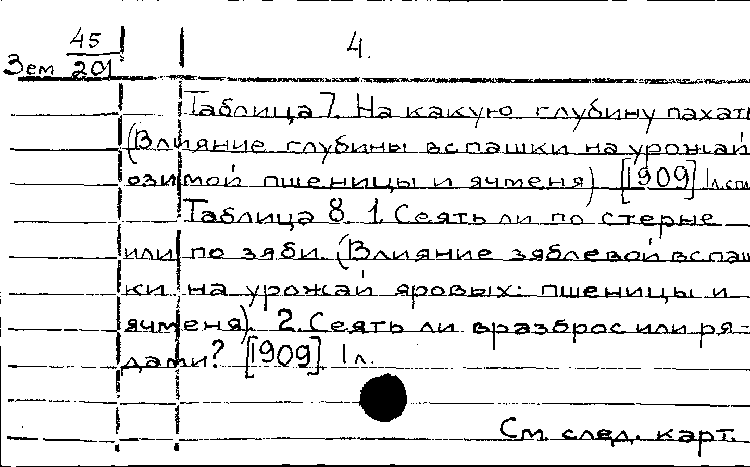 45
4.
Зем 201
Таблица 7. На какую глубину пахать
(Влияние глубины вспашки на урожай
озимой пшеницы и ячменя) [1909] 1 л.
Таблица 8. 1. Сеять ли по стерне
или по зяби. (Влияние зяблевой вспаш
ки на урожай яровых: пшеницы и
ячменя). 2. Сеять ли вразброс или ря-
дами? [1909]. 1 л.
См. след. карт.